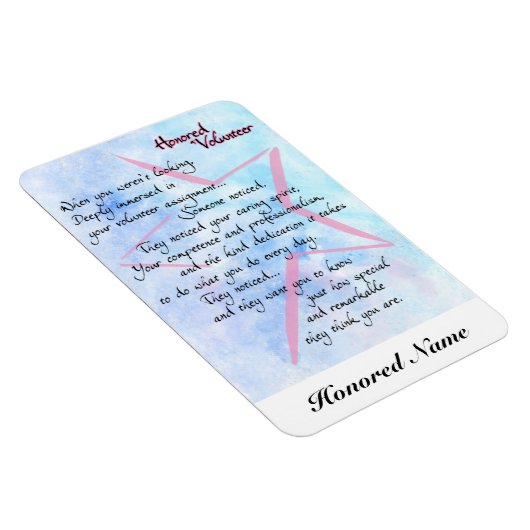 Honored
Volunteer
When you weren't looking,
Deeply immersed in
your volunteer assignment...
Someone noticed.
They noticed your caring spirit,
Your competence and professionalism,
and the kind dedication it takes
to do what you do every day.
They noticed...
and they want you to know
just how special
and remarkable
they think you are.
Honored Name